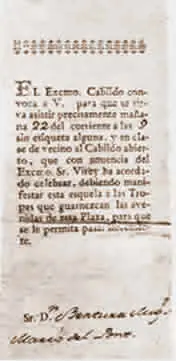 EL Excmo. Cabildo con
voca á V. para que se sir
va asistir precisamente maña
na 22 del corriente á las 9
sin etiqueta alguna, y en cla
se de vecino al Cabildo abier
to, que con anuencia del
Excmo. Sr. Virey ha acorda
do celebrar, debiendo mani
festar esta esquela á las Tro
pas que guarnezcan las ave
nidas de esta Plaza, para que
se le permita pasar
te.
Sr. D.
Maria del